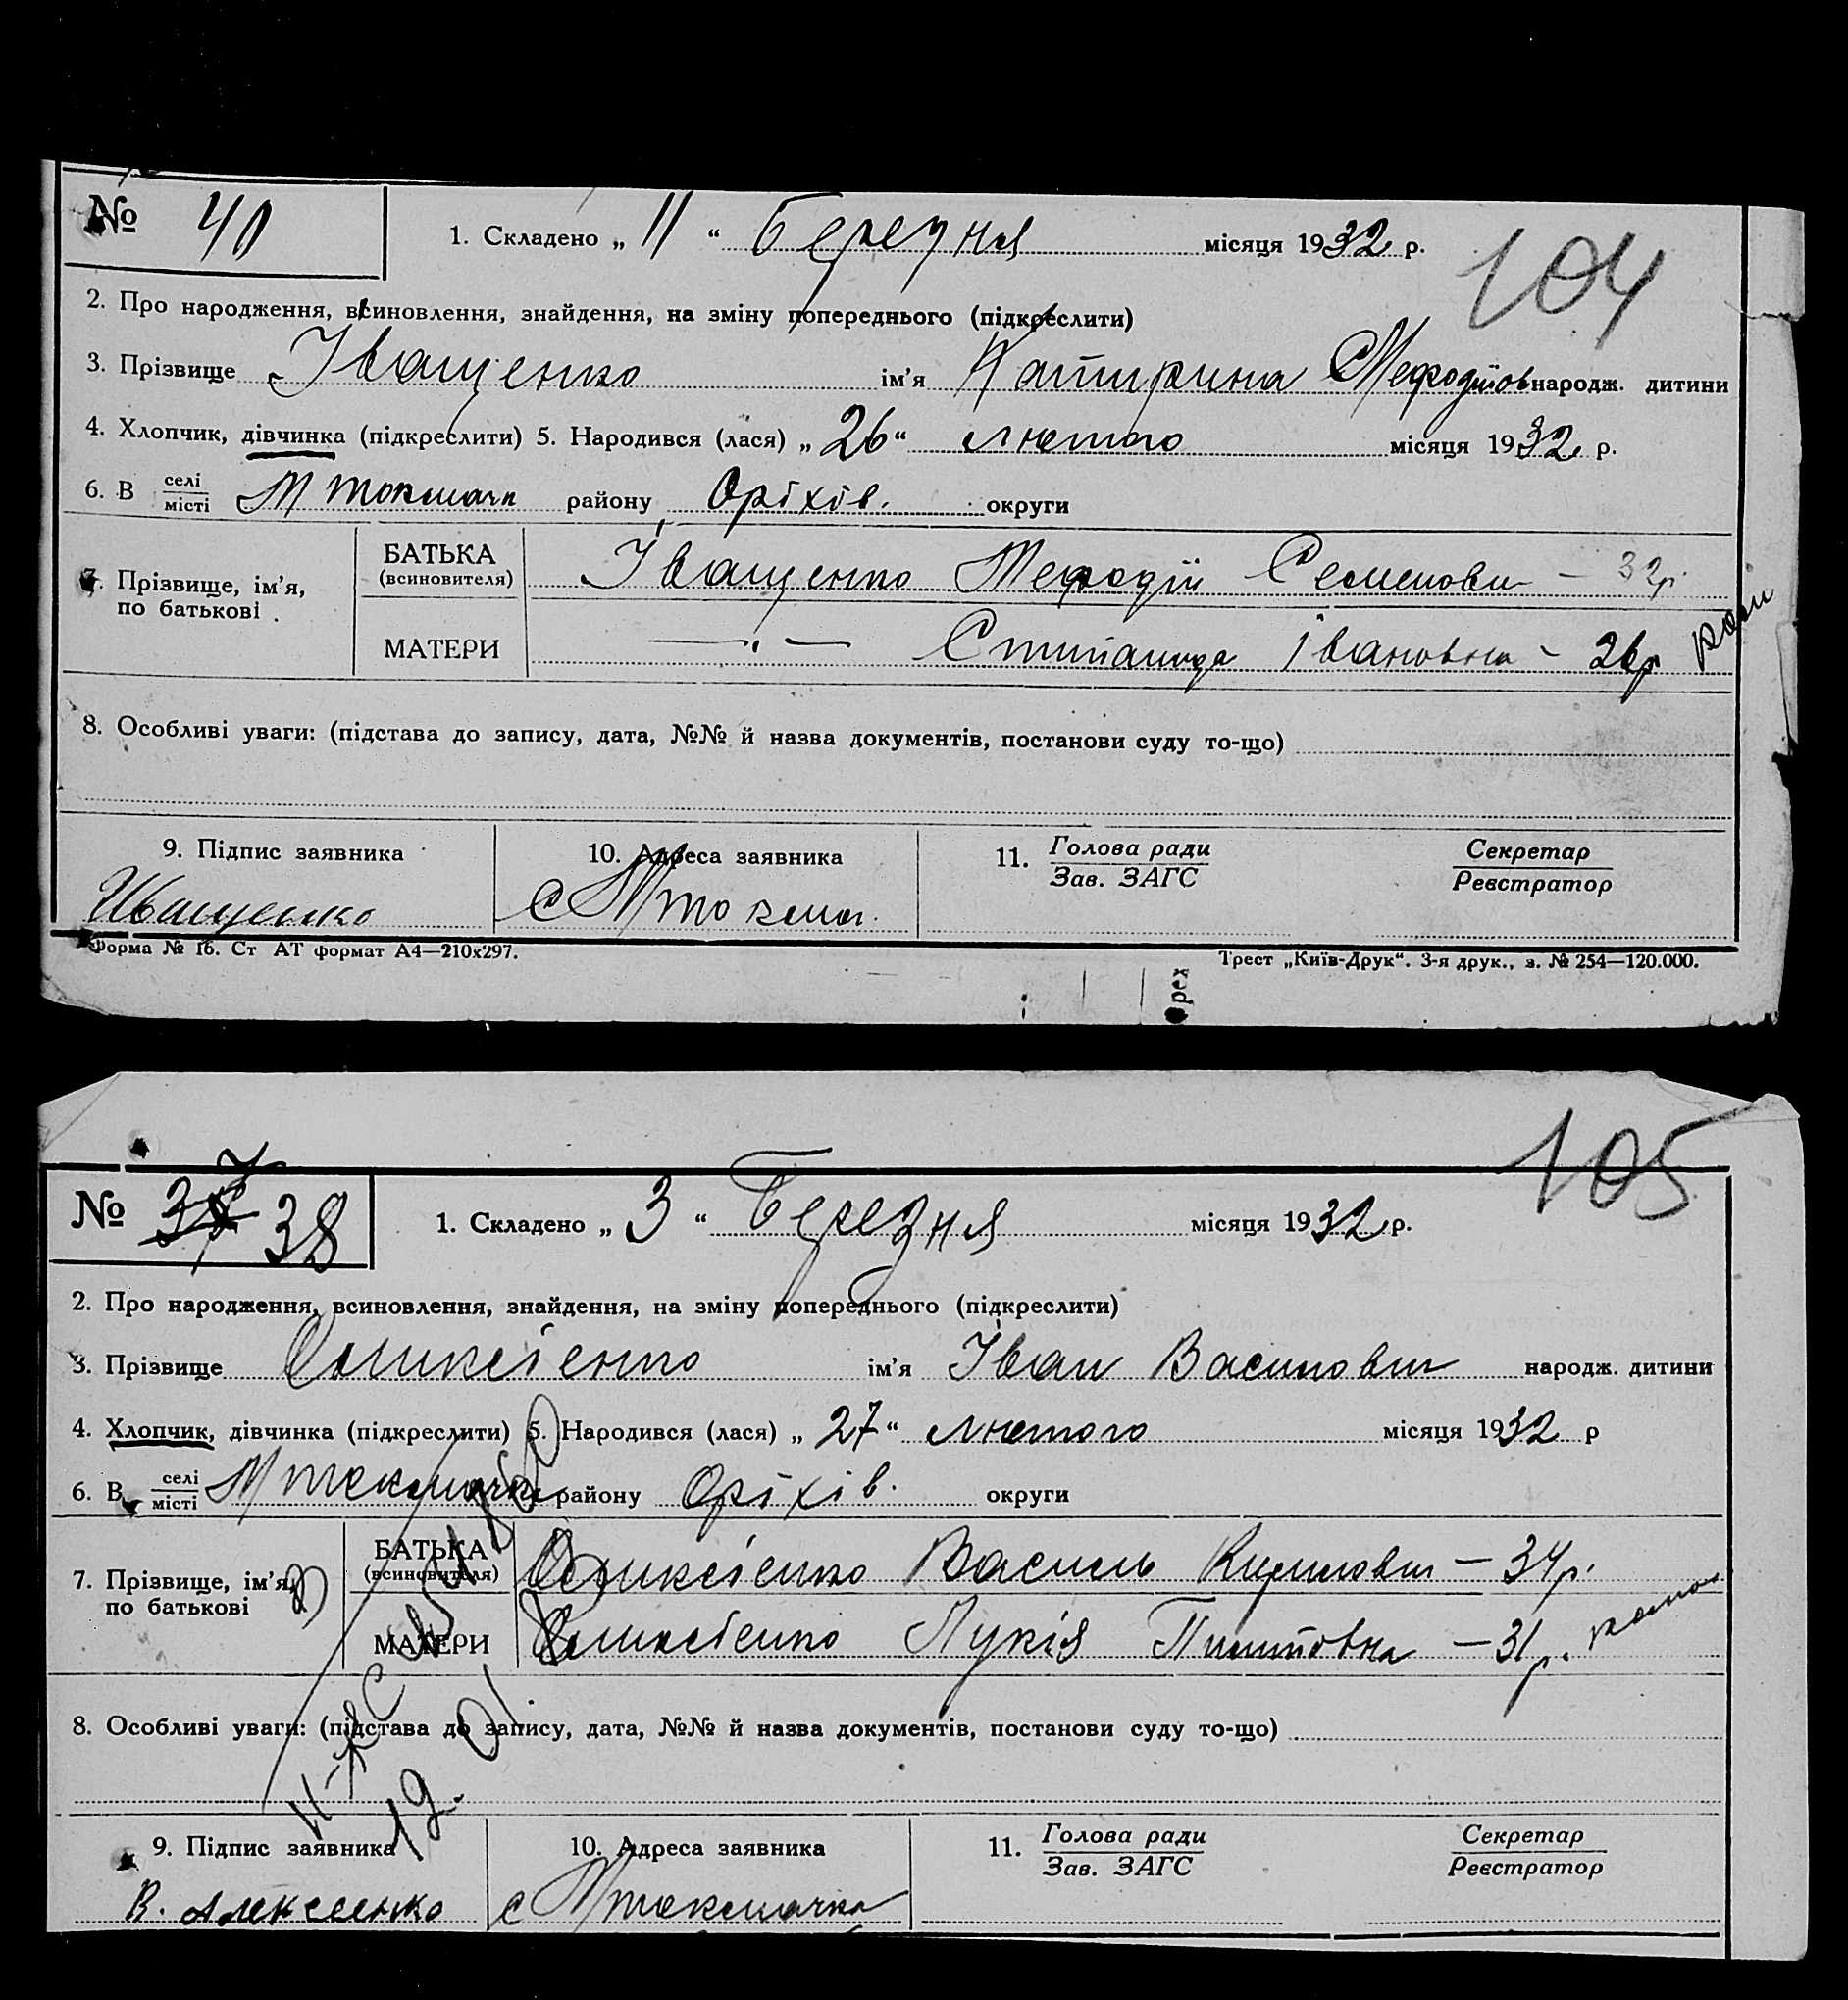 № 40
1. Складено „ 11 “ Березня місяця 1932 р.
104
2. Про народження, всиновлення, знайдення, на зміну попереднього (підкреслити)
3. Прізвище Іващенко ім'я Катирина Мефодіїов народж. дитини
4. Хлопчик, дівчинка (підкреслити) 5. Народився (лася) „ 26 “ лютого місяця 1932 р.
6. В селі
місті М токмачк району Оріхів. округи
7. Прізвище, ім'я,
по батькові
БАТЬКА
(всиновителя) Іващенко Мефодій Семенович – 32р.
МАТЕРИ —„— Степанида Івановна – 26р
8. Особливі уваги: (підстава до запису, дата, №№ й назва документів, постанови суду то-що)
9. Підпис заявника
Иващенко
10. Адреса заявника
с М токмач.
11. Голова ради
Зав. ЗАГС
Секретар
Реєстратор
Форма № 1б. Ст АТ формат А4—210х297.
Трест „Київ-Друк“. 3-я друк., з. № 254—120.000.
105
№ 38
1. Складено „ 3 “ Березня місяця 1932 р.
2. Про народження, всиновлення, знайдення, на зміну попереднього (підкреслити)
3. Прізвище Оликсієнко ім'я Іван Васильович народж. дитини
4. Хлопчик, дівчинка (підкреслити) 5. Народився (лася) „ 27 “ лютого місяця 1932 р
6. В селі
місті М токмачка району Оріхів. округи
7. Прізвище, ім'я,
по батькові
БАТЬКА
(всиновителя) Оликсієнко Василь Кирилович – 34р.
МАТЕРИ Оликсієнко Лукія Пилиповна – 31р.
8. Особливі уваги: (підстава до запису, дата, №№ й назва документів, постанови суду то-що)
9. Підпис заявника
В. Алексеенко
10. Адреса заявника
с М токмачка
11. Голова ради
Зав. ЗАГС
Секретар
Реєстратор